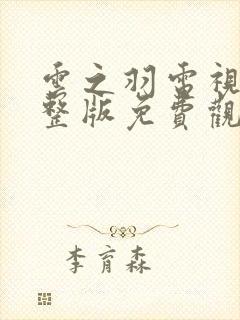 雲之羽電視
整版免費觀
李育森